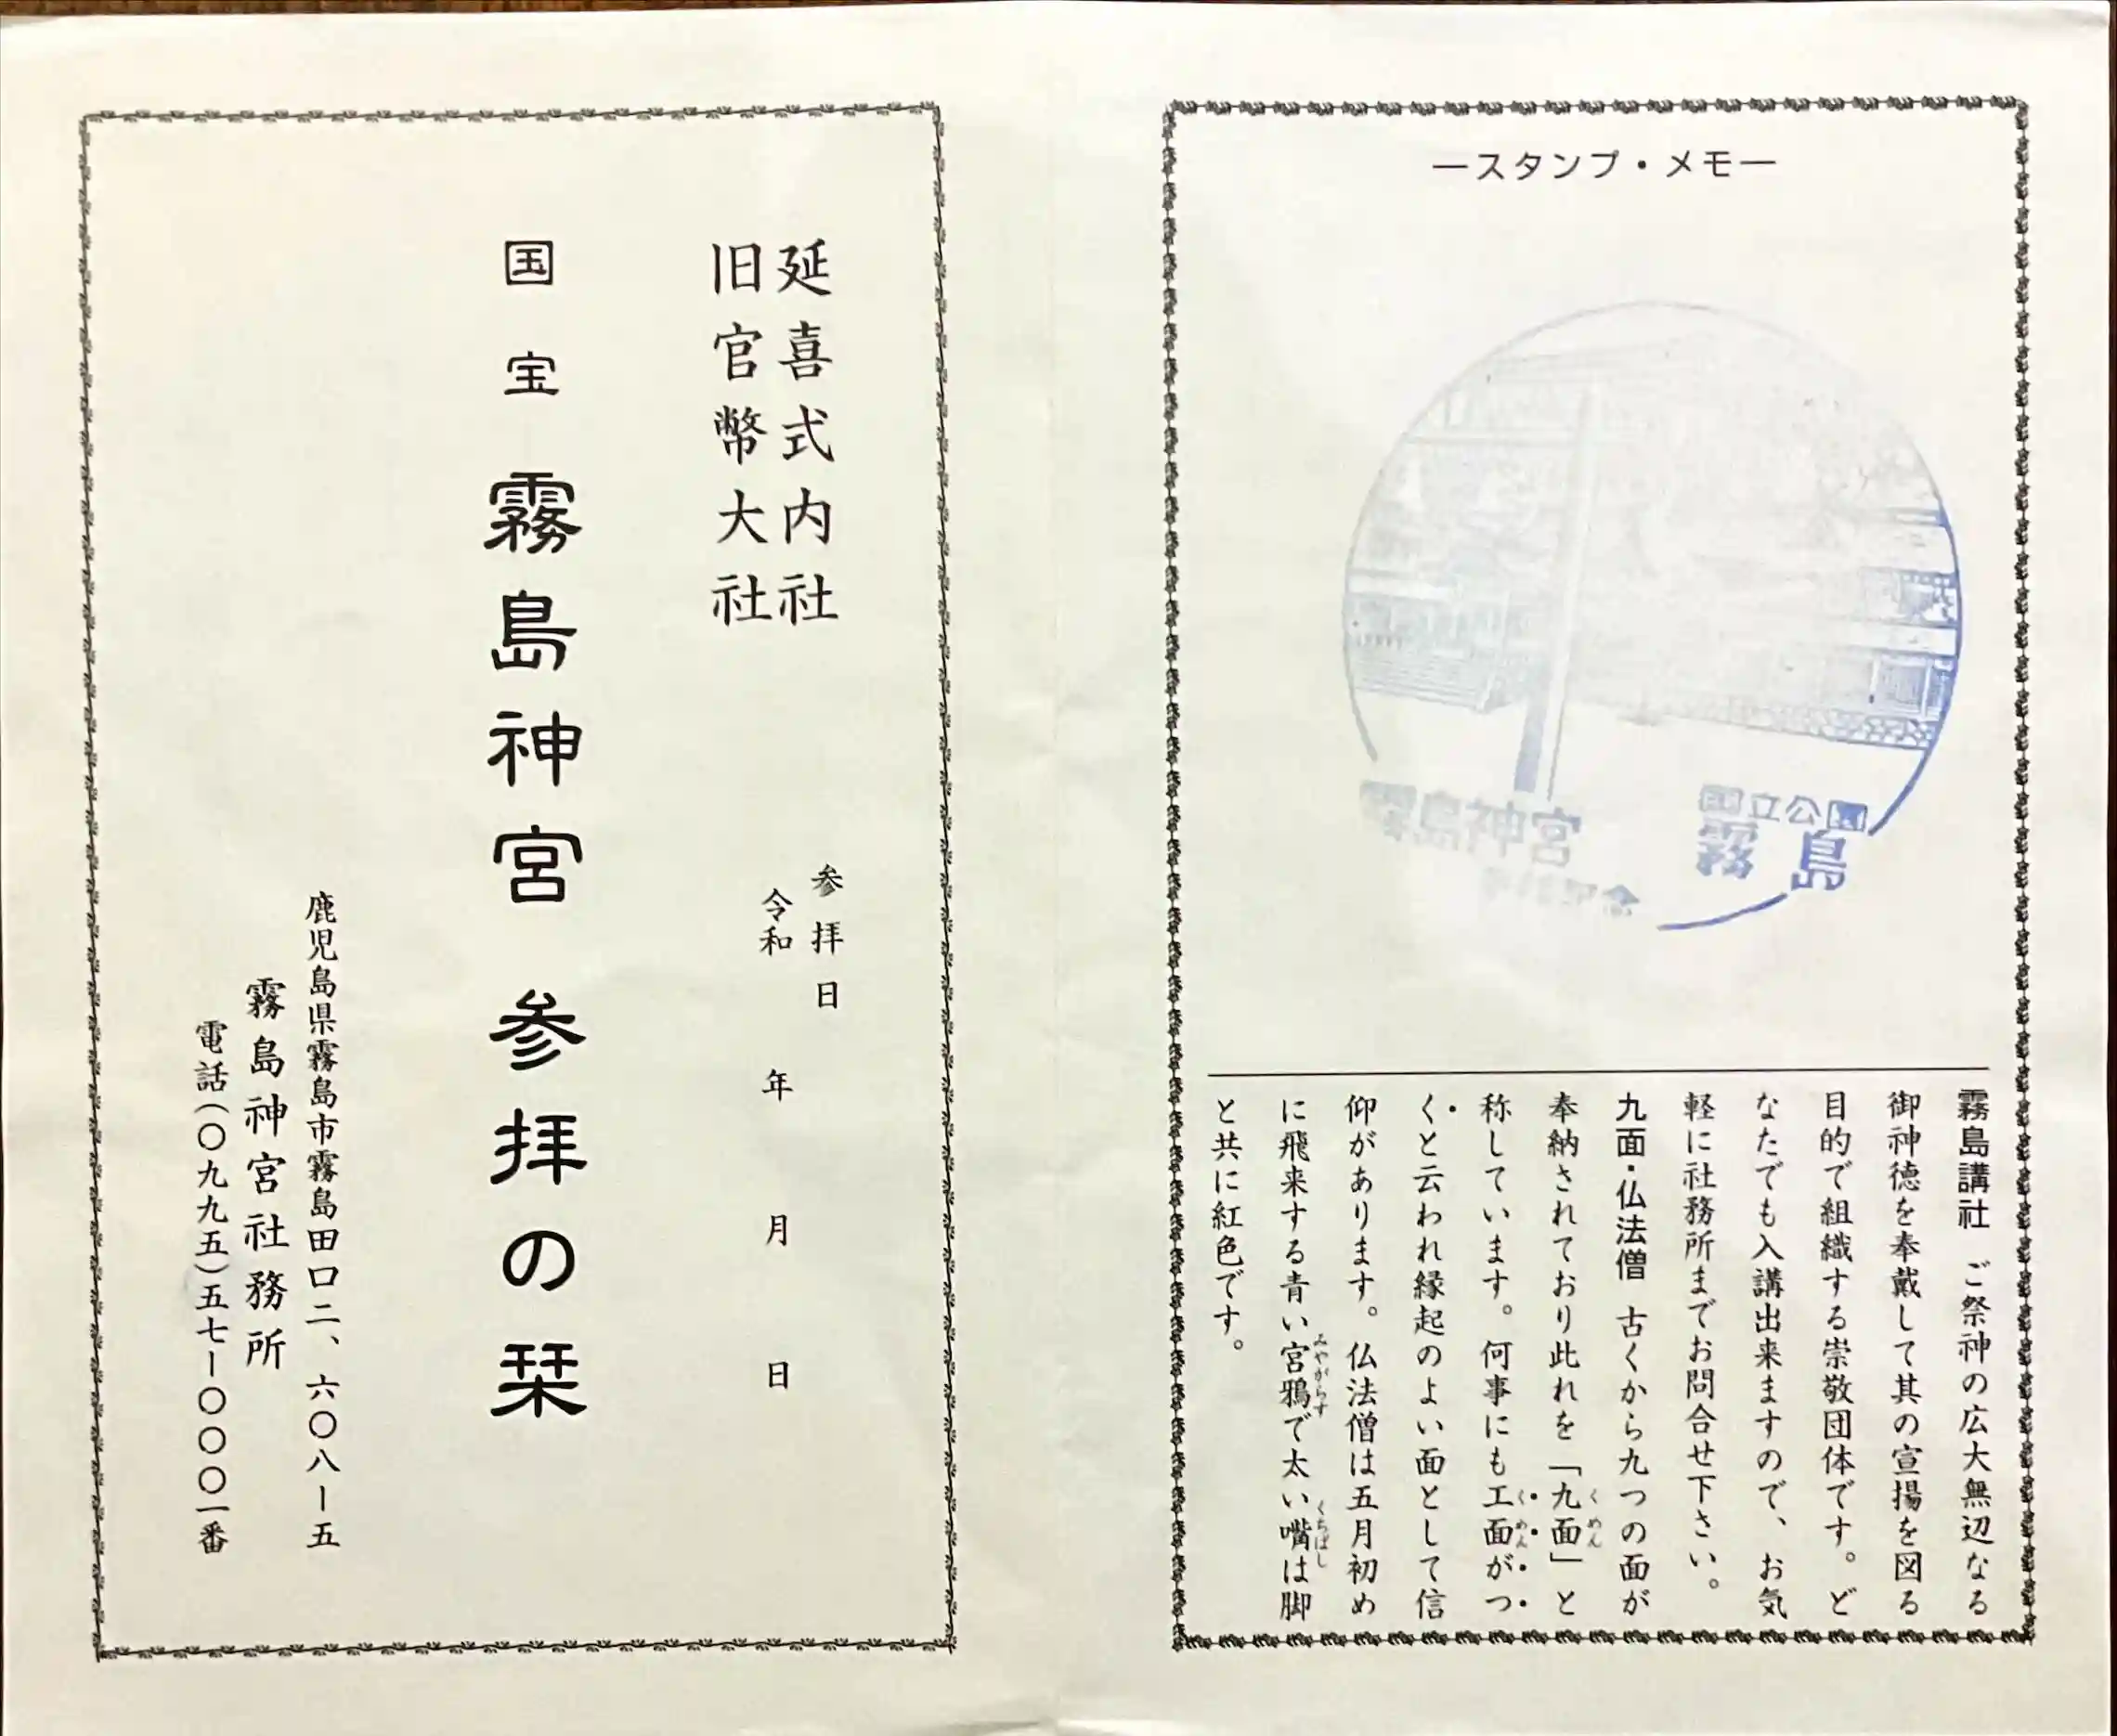 ―スタンプ・メモ―
霧島神宮
国立公園
霧島
霧島講社 ご祭神の広大無辺なる
御神徳を奉戴して其の宣揚を図る
目的で組織する崇敬団体です。ど
なたでも入講出来ますので、お気
軽に社務所までお問合せ下さい。
九面・仏法僧 古くから九つの面が
奉納されており此れを「九面」と
くめん
称しています。何事にも工面がつ
くめん
くと云われ縁起のよい面として信
仰があります。仏法僧は五月初め
に飛来する青い宮鴉で太い嘴は脚
みやがらす
くちばし
と共に紅色です。
延喜式内社
旧官幣大社
参拝日
令和 年 月 日
国宝 霧島神宮 参拝の栞
鹿児島県霧島市霧島田口二、六〇八ー五
霧島神宮社務所
電話(〇九九五)五七ー〇〇〇一番